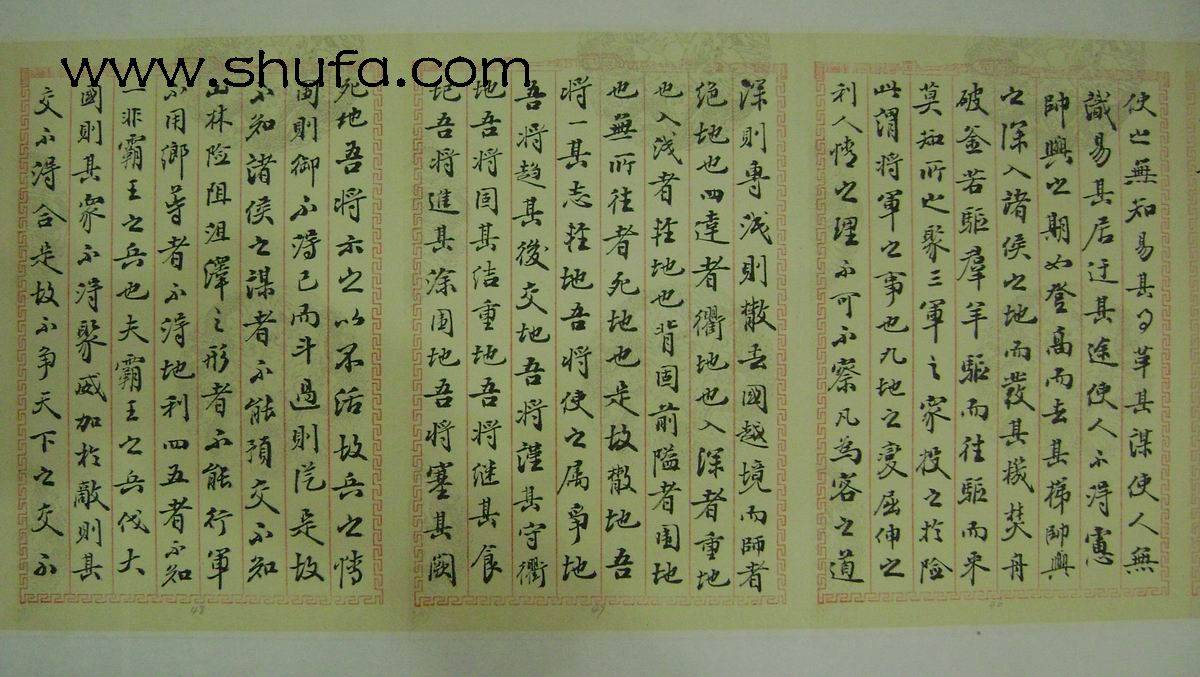 www.shufa.com
使之無知易其事革其謀使人無
識易其居迂其途使人不得慮
帥與之期如登高而去其梯帥與
之深入諸侯之地而發其機焚舟
破釜若驅羣羊驅而往驅而來
莫知所之聚三軍之衆投之於險
此謂將軍之事也九地之變屈伸之
利人情之理不可不察凡為客之道
46
深則專淺則散去國越境而師者
絕地也四達者衢地也入深者重地
也入淺者輕地也背固前隘者圍地
也無所往者死地也是故散地吾
將一其志輕地吾將使之属爭地
吾將趨其後交地吾將謹其守衢
地吾將固其結重地吾將继其食
圮吾將進其涂围地吾將塞其闕
47
死地吾將示之以不活故兵之情
圍則御不得已而斗過則從是故
不知諸侯之謀者不能預交不知
山林险阻沮澤之形者不能行軍
不用鄉導者不得地利四五者不知
一非霸王之兵也夫霸王之兵伐大
國則其衆不得聚威加於敵則其
交不得合是故不爭天下之交不
48